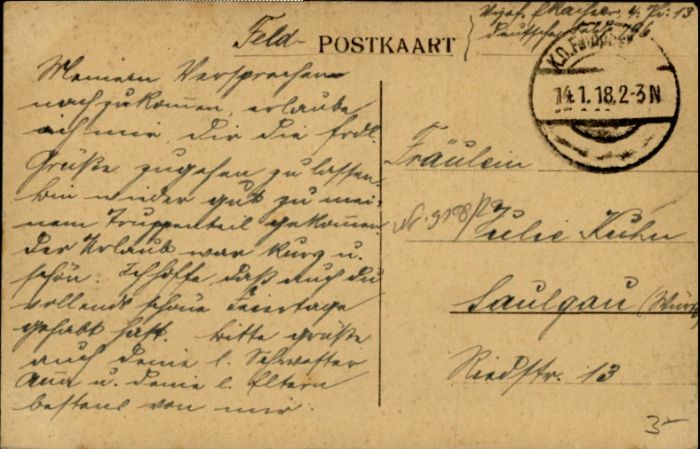 Feld- POSTKAART
Meinem Versprechen
nachzukommen, erlaube
ich mir Dir die frdl.
Grüße zugehen zu lassen.
bin wieder gut zu mei-
nem Truppenteil gekommen.
der Urlaub war kurz u.
schön. Ich hoffe, daß auch du
vollends schöne Feiertage
gehabt hast. bitte grüße
auch deine l. Schwester
Anna u. deine l. Eltern
bestens von mir.
13
Deutsche 796
14.1.18.2-3N
Fräulein
Julie Kuhn
Saulgau (Württ
Riedstr. 13
3-